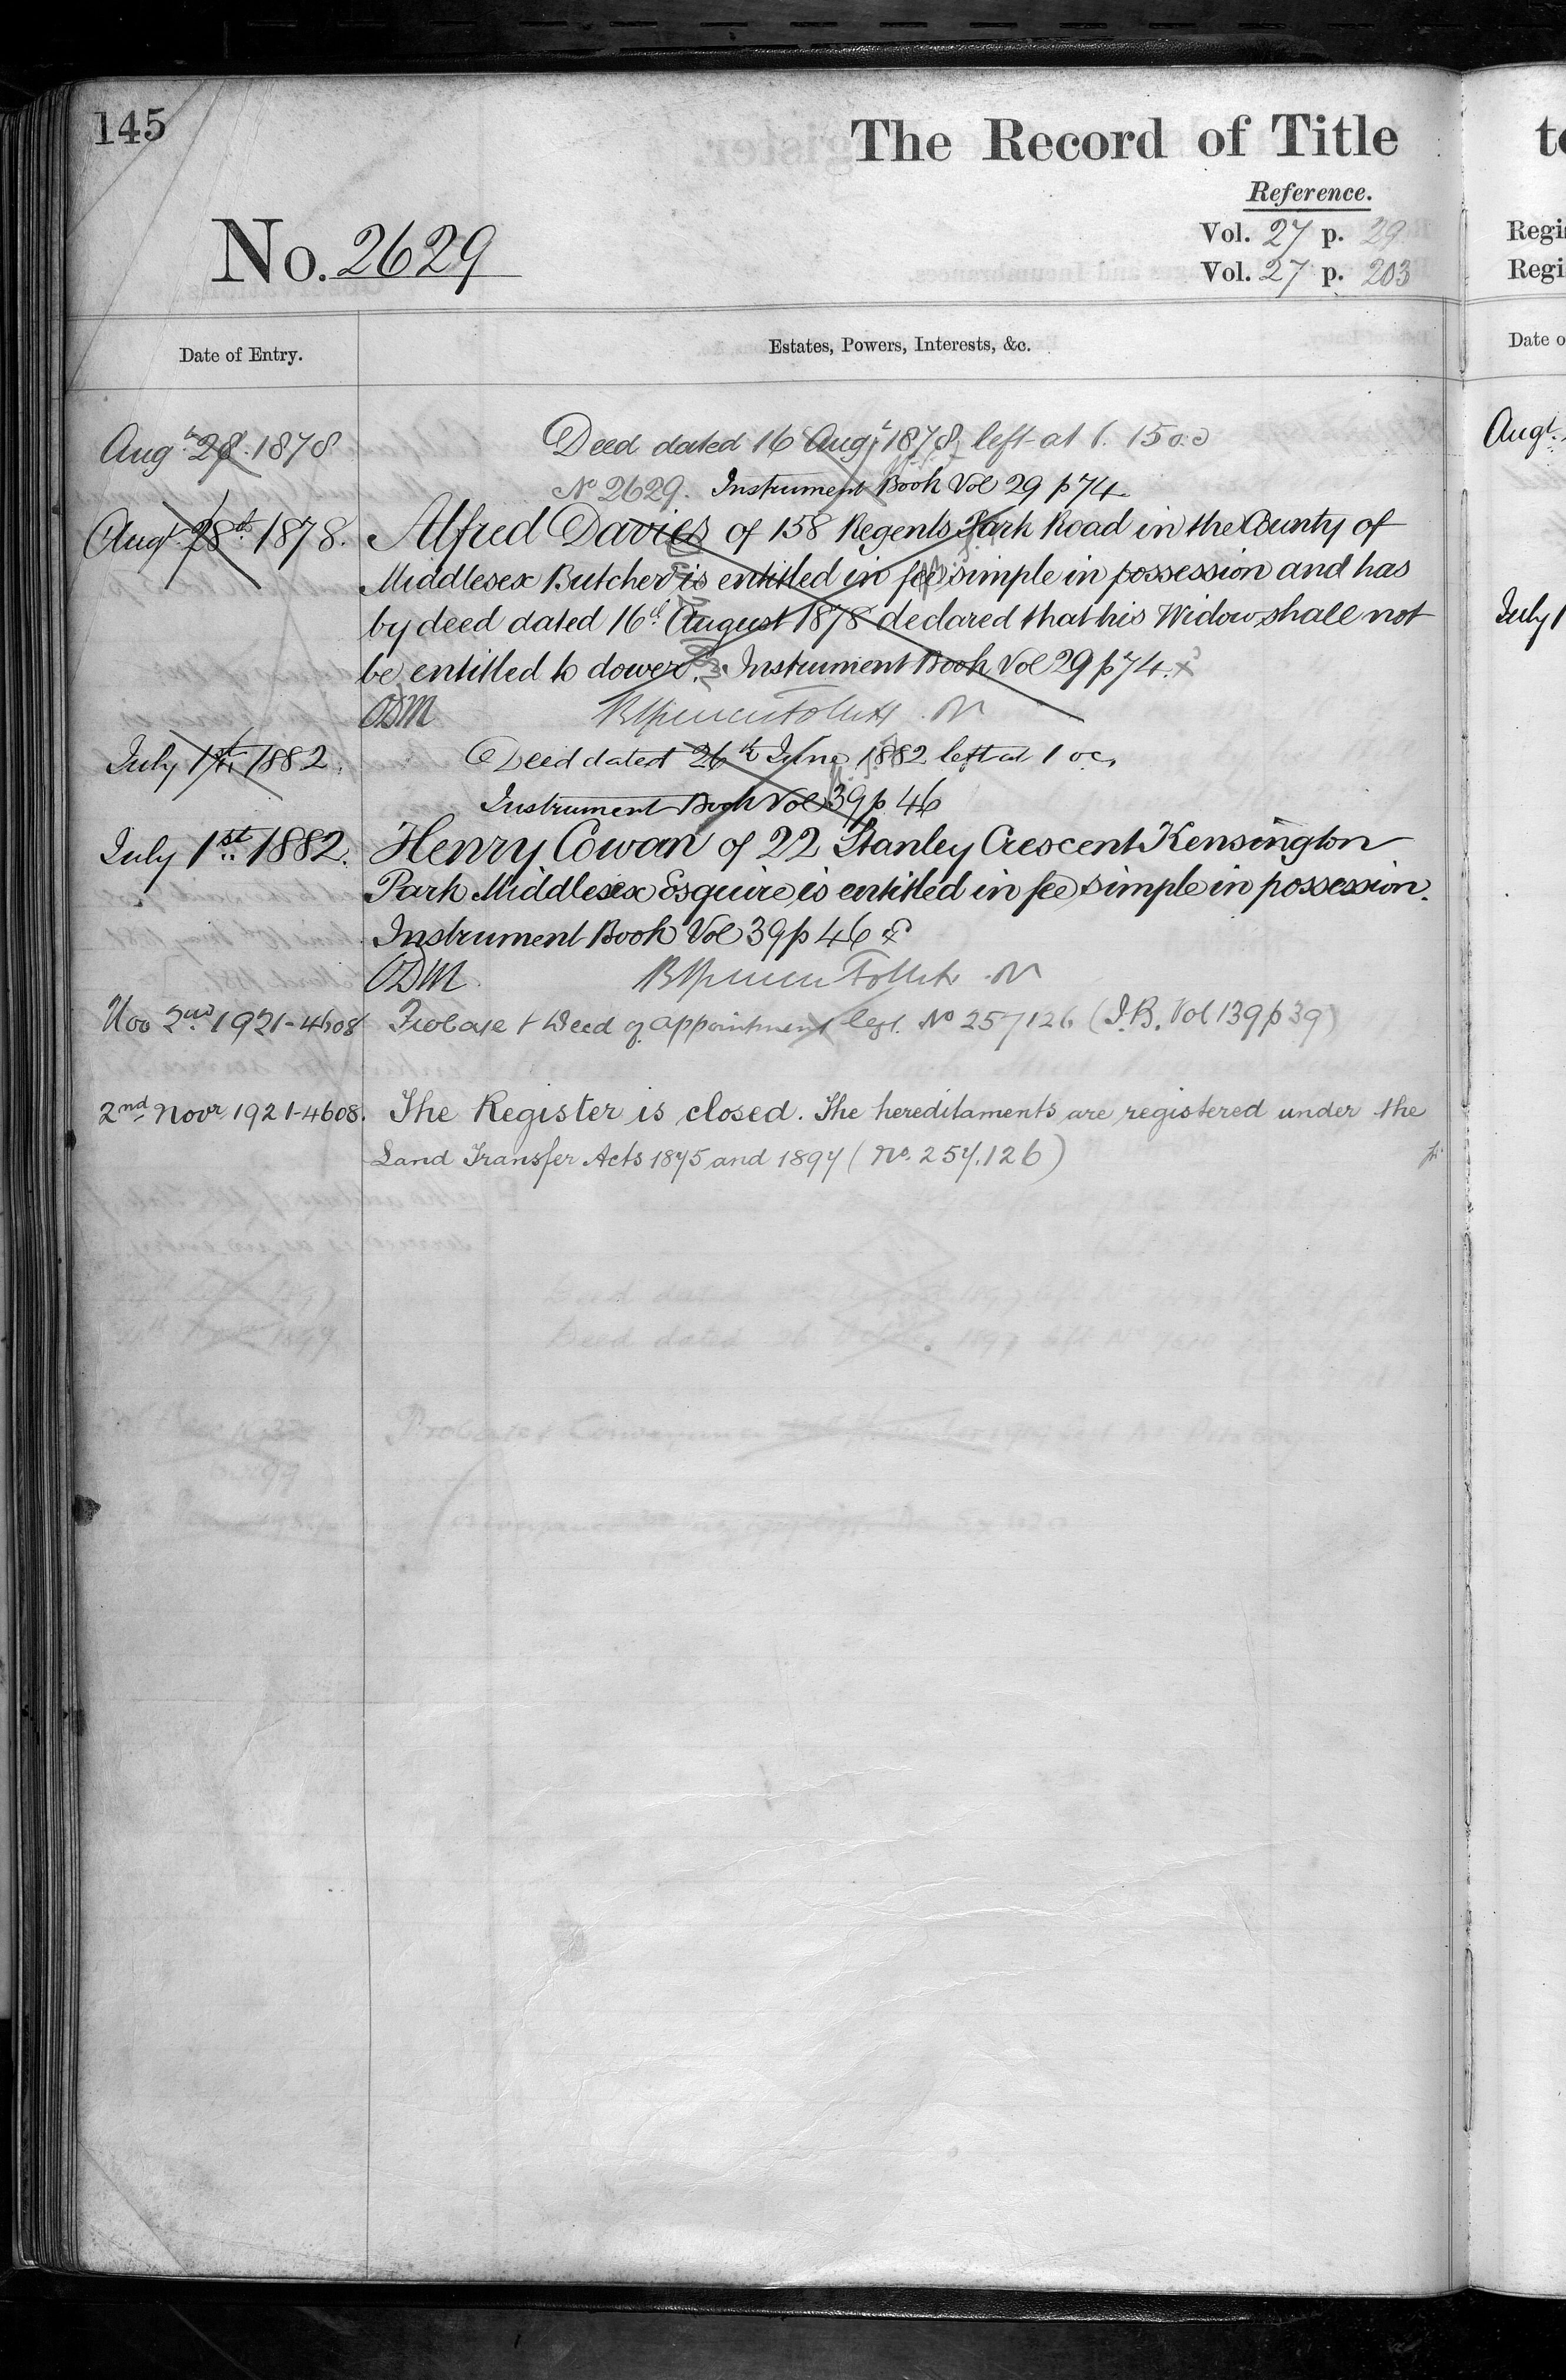 145
The Record of Title
Reference.
No. 2629
Vol. 27 p. 29
Vol. 27 p. 203
Date of Entry.
Estates, Powers, Interests, &c.
Augt. 28. 1878
Deed dated 16 Augt 1878 left at 1. 15 o.c
No 2629. Instrument Book Vol 29 p 74
Augt. 28th. 1878. Alfred Davies of 158 Regents Park Road in the County of
Middlesex Butcher is entitled in fee simple in possession and has
by deed dated 16th August 1878 declared that his Widow shall not
be entitled to dower. Instrument Book Vol 29 p 74.
ODM
July 1st 1882. Deed dated 26th June 1882 left at 1 oc,
Instrument Book Vol 39 p 46
July 1st 1882. Henry Cowan of 22 Stanley Crescent Kensington
Park Middlesex Esquire is entitled in fee simple in possession.
Instrument Book Vol 39 p 46
ODM
Nov 2nd 1921-4608 Probate & Deed of appointment left. No 257126 (I.B. Vol 139 p 39)
2nd Novr 1921-4608. The Register is closed. The hereditaments are registered under the
Land Transfer Acts 1875 and 1897 (No. 257.126)
to
Regi
Regi
Date o
Augt.
July 1